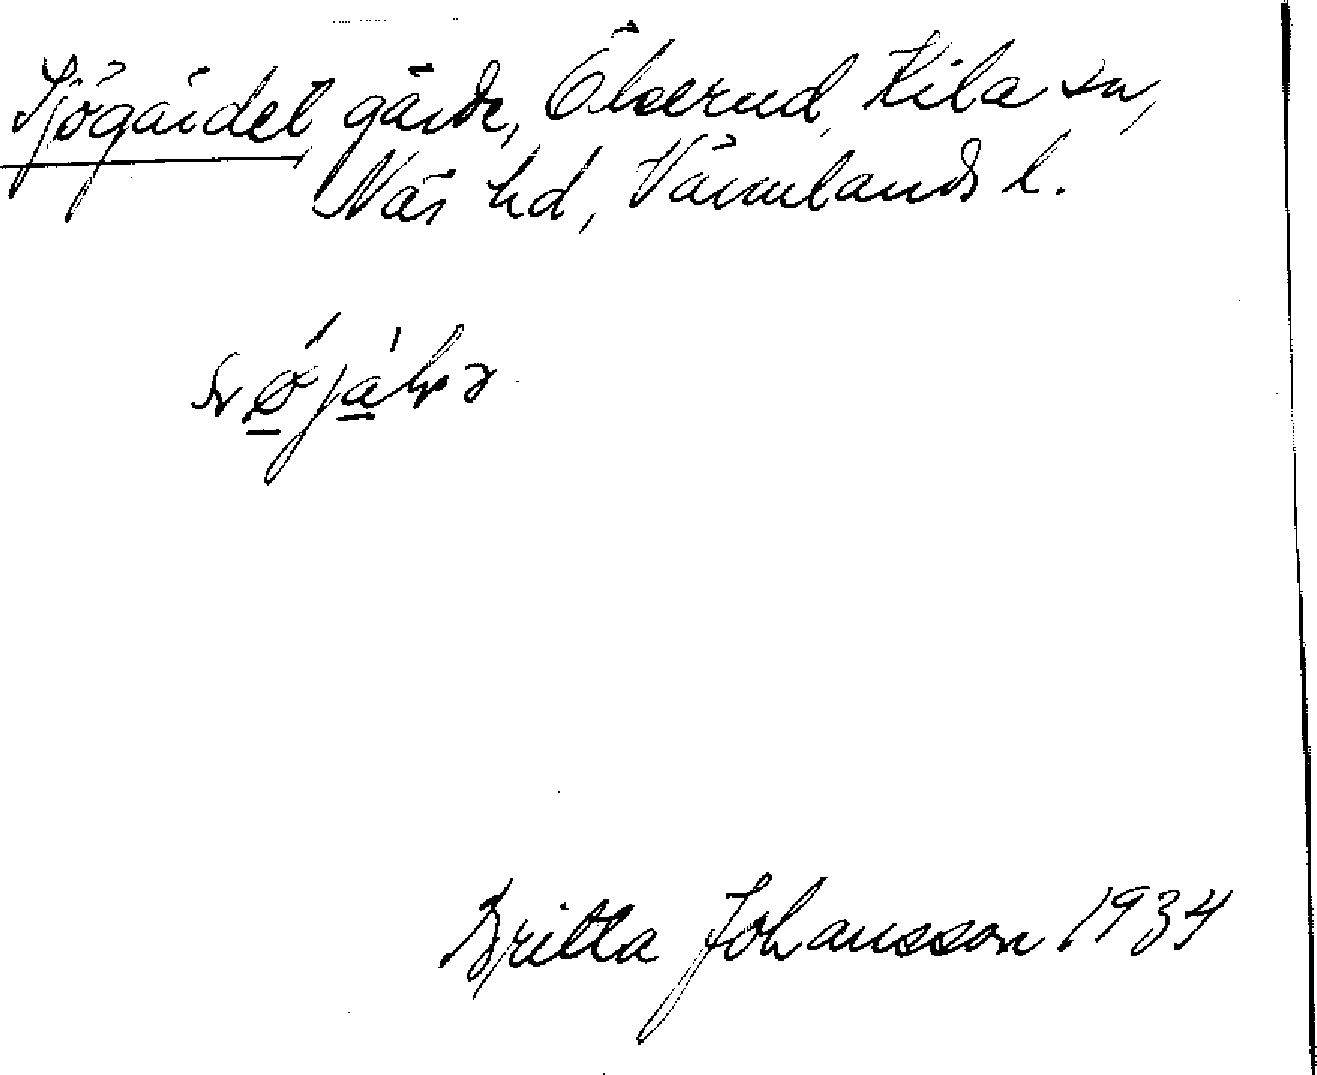 Sjögärdet, gärde, Ölserud, Kila sn,
Näs hd, Värmlands l.
Britta Johansson 1934